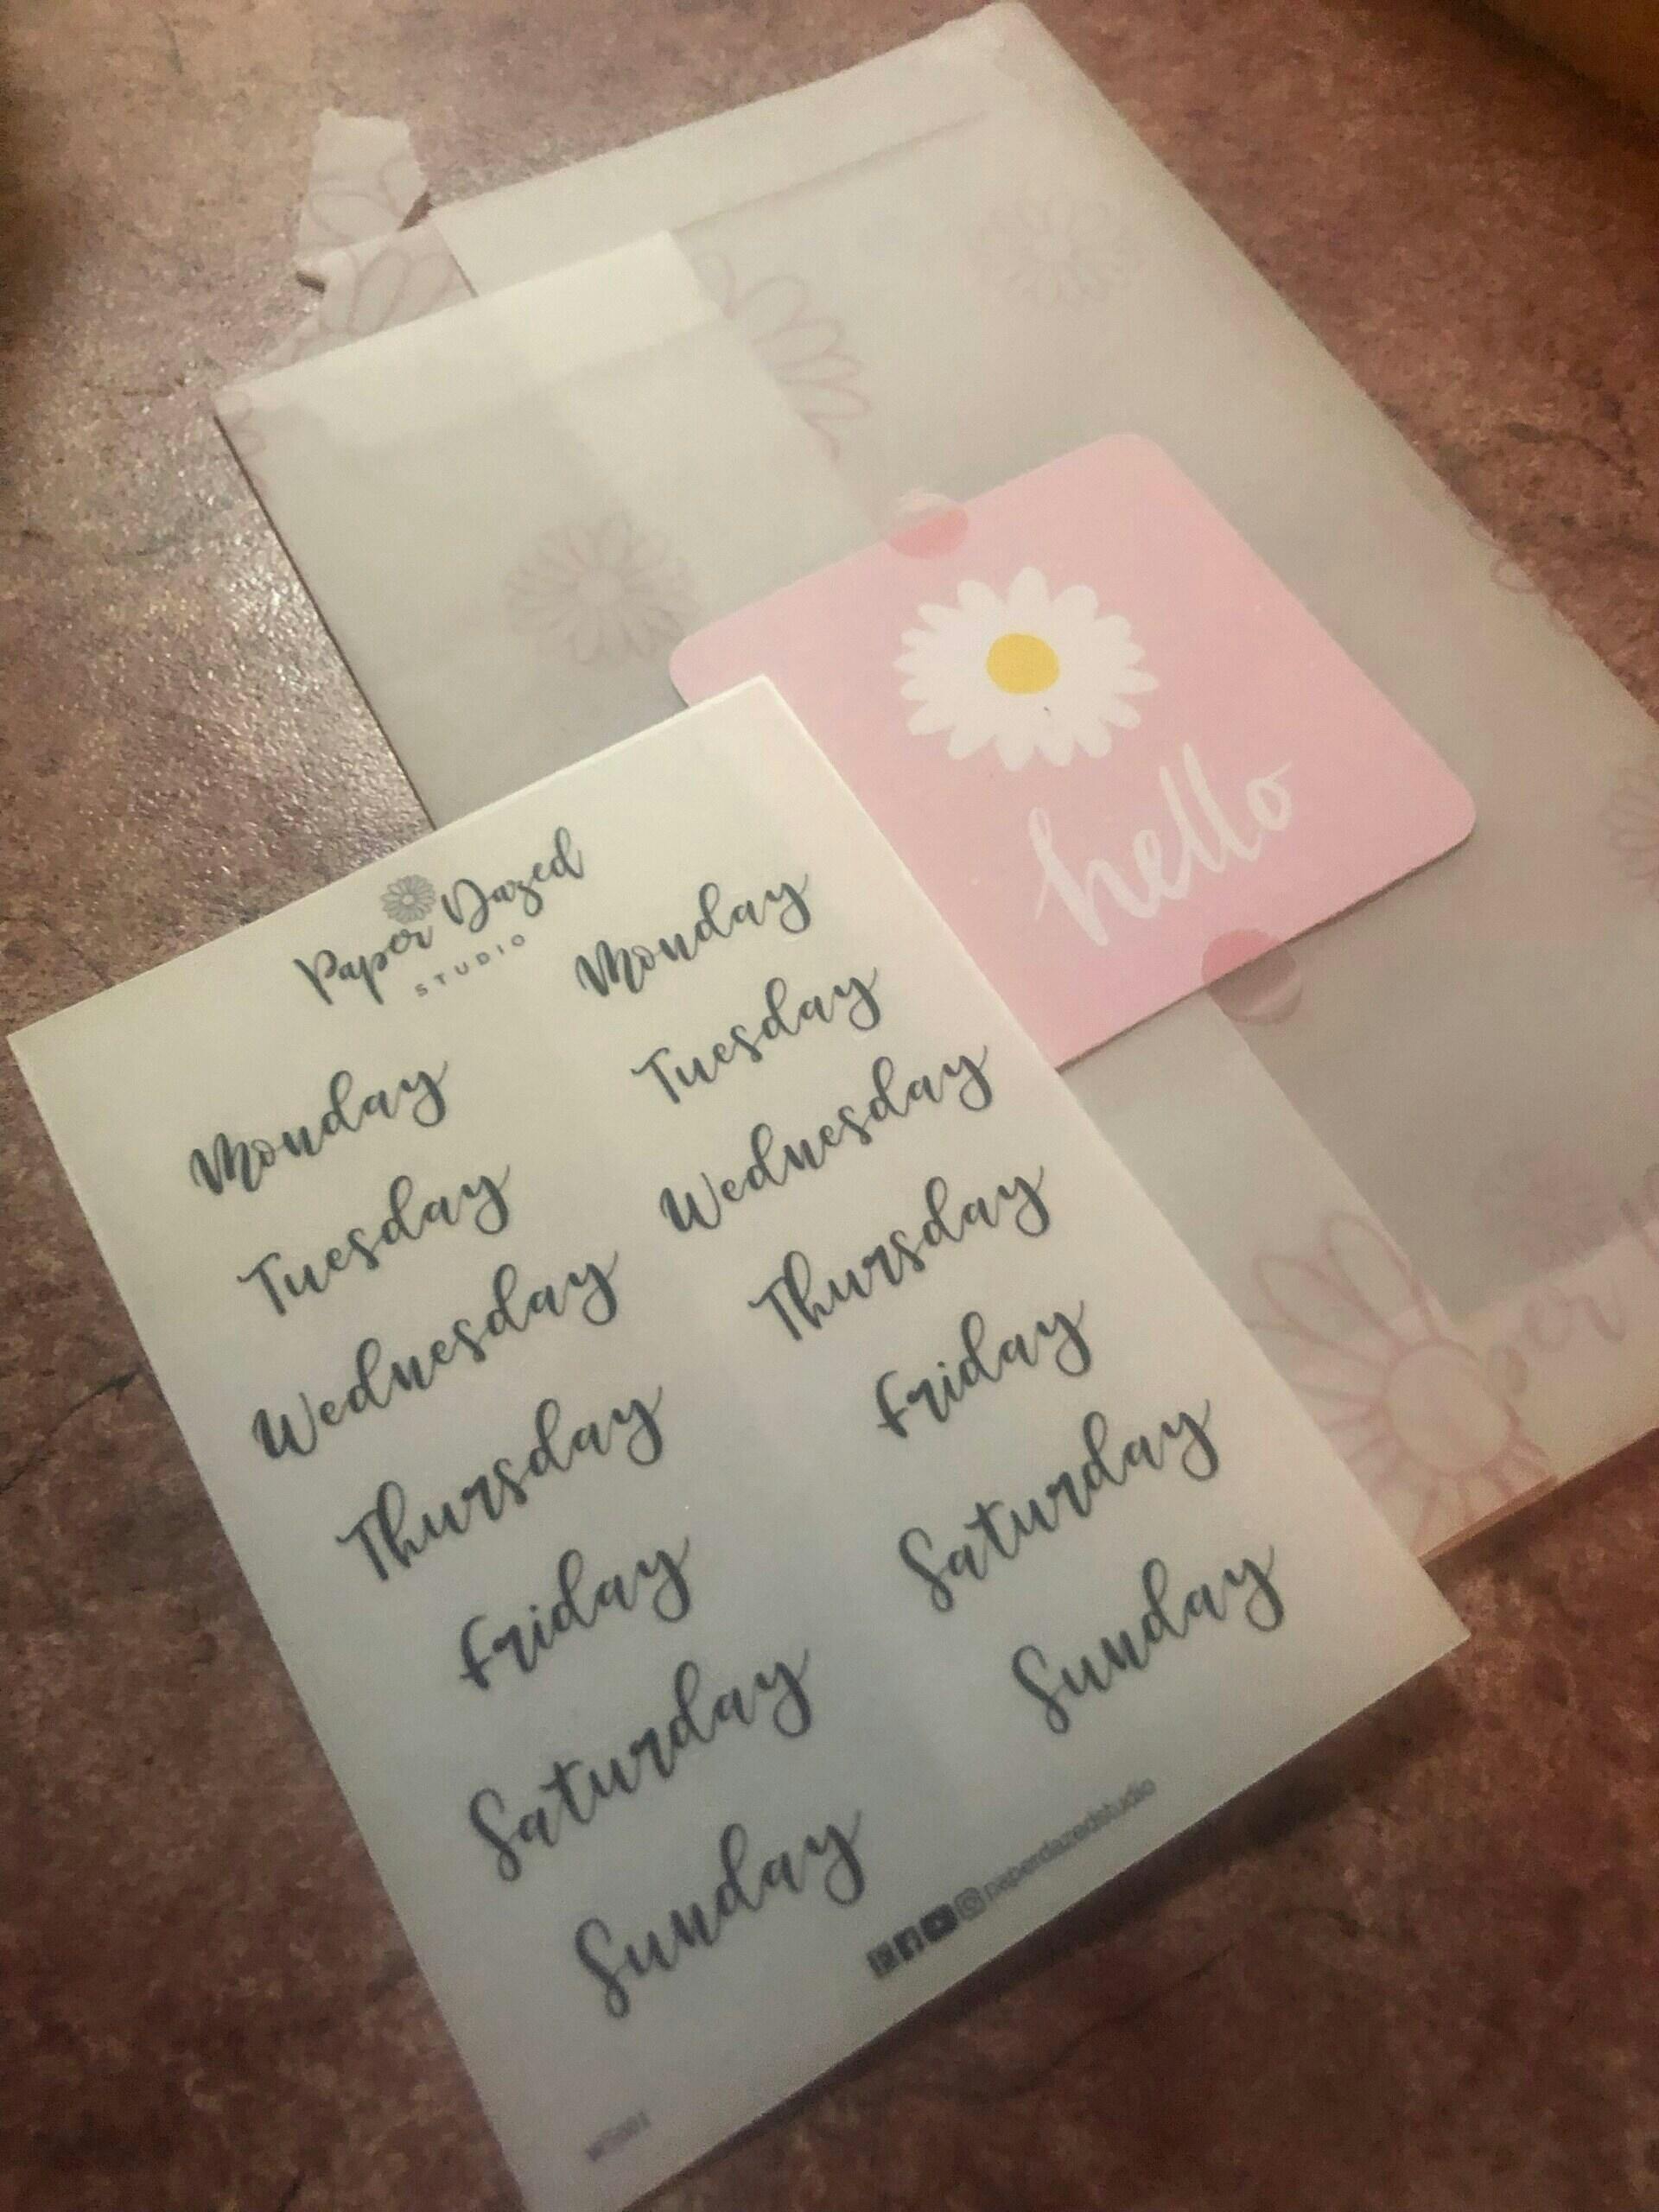 hello
Paper Dazed
STUDIO
Monday
Tuesday
Wednesday
Thursday
Friday
Saturday
Sunday
Monday
Tuesday
Wednesday
Thursday
Friday
Saturday
Sunday
paperdazedstudio